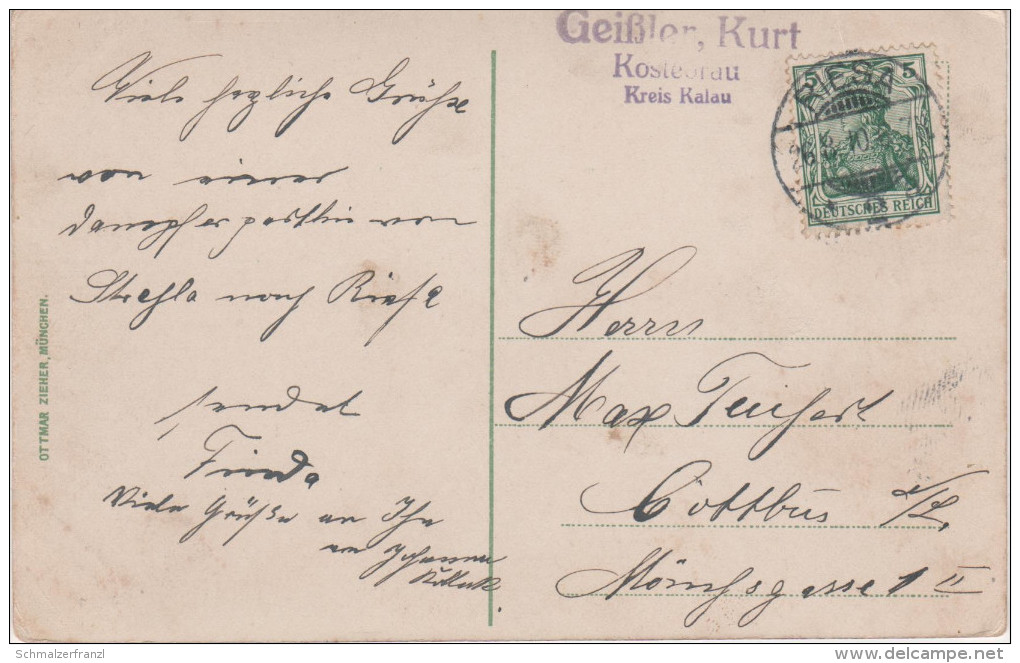 Geißler, Kurt
Kostebrau
Kreis Kalau
5 5
RIESA
DEUTSCHES REICH
Viele herzliche Grüße
von einer
Dampferparthie von
Strehla nach Riesa
sendet
Frieda
Viele Grüße an Ihr
Herrn
Max Teichert
Cottbus N/L.
Mönchsgasse 1 II
OTTMAR ZIEHER, MÜNCHEN.
Schmalzerfranzl
www.delcampe.net